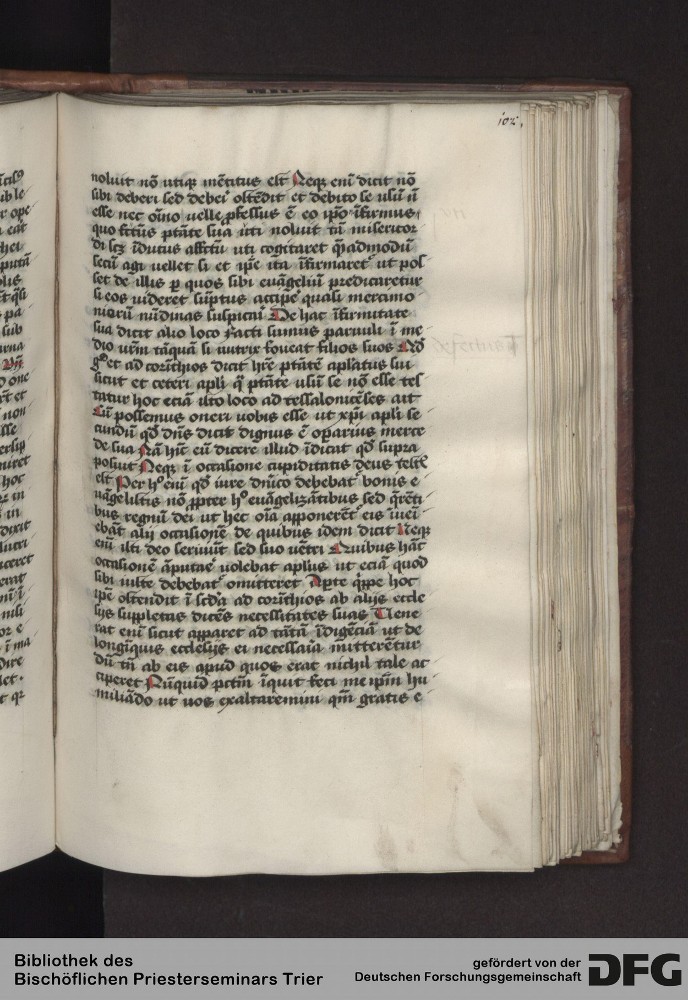 102,
noluit nō utiqꝫ mētitus est Neqꝫ enī dicit nō
sibi deberi sed debeꝛi ostēdit et debito se usū nō
esse nec oīno uelle ꝓfessus ē eo ipō īfirmus
quo fctūs ptāte sua uti noluit tn̄ misericor
di scꝫ īdutus affctū uti cogitaret qͣadmodū
secū agi uellet si et ipē ita īfirmaretᷣ ut pos
set de illis ꝑ quos sibi euāgeliū predicaretur
si eos uideret sūptus accipe quasi mercimo
niorū nūdinas suspicari De hac īfirmitate
sua dicit alio loco facti sumus paruuli ī me
dio ur̄m tāquā si nutrix foueat filios suos Nā
et ad corīthios dicit hr̄e ptātē aplatus sui
sicut et ceteri apli qͣ ptāte usū se nō esse tes
tatur hoc eciā isto loco ad tessalonicēses ait
Cū possemus oneri uobis esse ut xp̄i apli se
cundū qd̄ dn̄s dicit dignus ē oꝑarius merce
de sua Nā hūc eū dicere illud īdicat qd̄ supra
posiuit Neqꝫ ī occasione cupiditatis deus testis
est Per hͦ enī qd̄ iure dn̄ico debebatᷣ bonis e
uāgelistis nō ꝓpter hͦ euāgelizātibus sed qͣrēti
bus regnū dei ut hec oīa apponerētᷣ eis īueī
ebāt alij occasionē de quibus idem dicit Neqꝫ
enī isti deo seriuūt sed suo uētri Quibus hāc
occasionē āputare uolebat aplus ut eciā quod
sibi iuste debebatᷣ omitteret Aꝑte qͥppe hoc
ipē ostendit ī scd̄a ad corīthios ab alijs eccle
sijs suppletas dicēs necessitates suas Uene
rat enī sicut apparet ad tātā īdigēciā ut de
longīquis ecclesijs ei necessaīa mitterētur
dū tn̄ ab eis apud quos erat nichil tale ac
ciperet Nūquid pctm̄ īquit feci me ipm̄ hu
miliādo ut uos exaltaremini qm̄ gratis e
Bibliothek des
Bischöflichen Priesterseminars Trier
gefördert von der
Deutschen Forschungsgemeinschaft
DFG